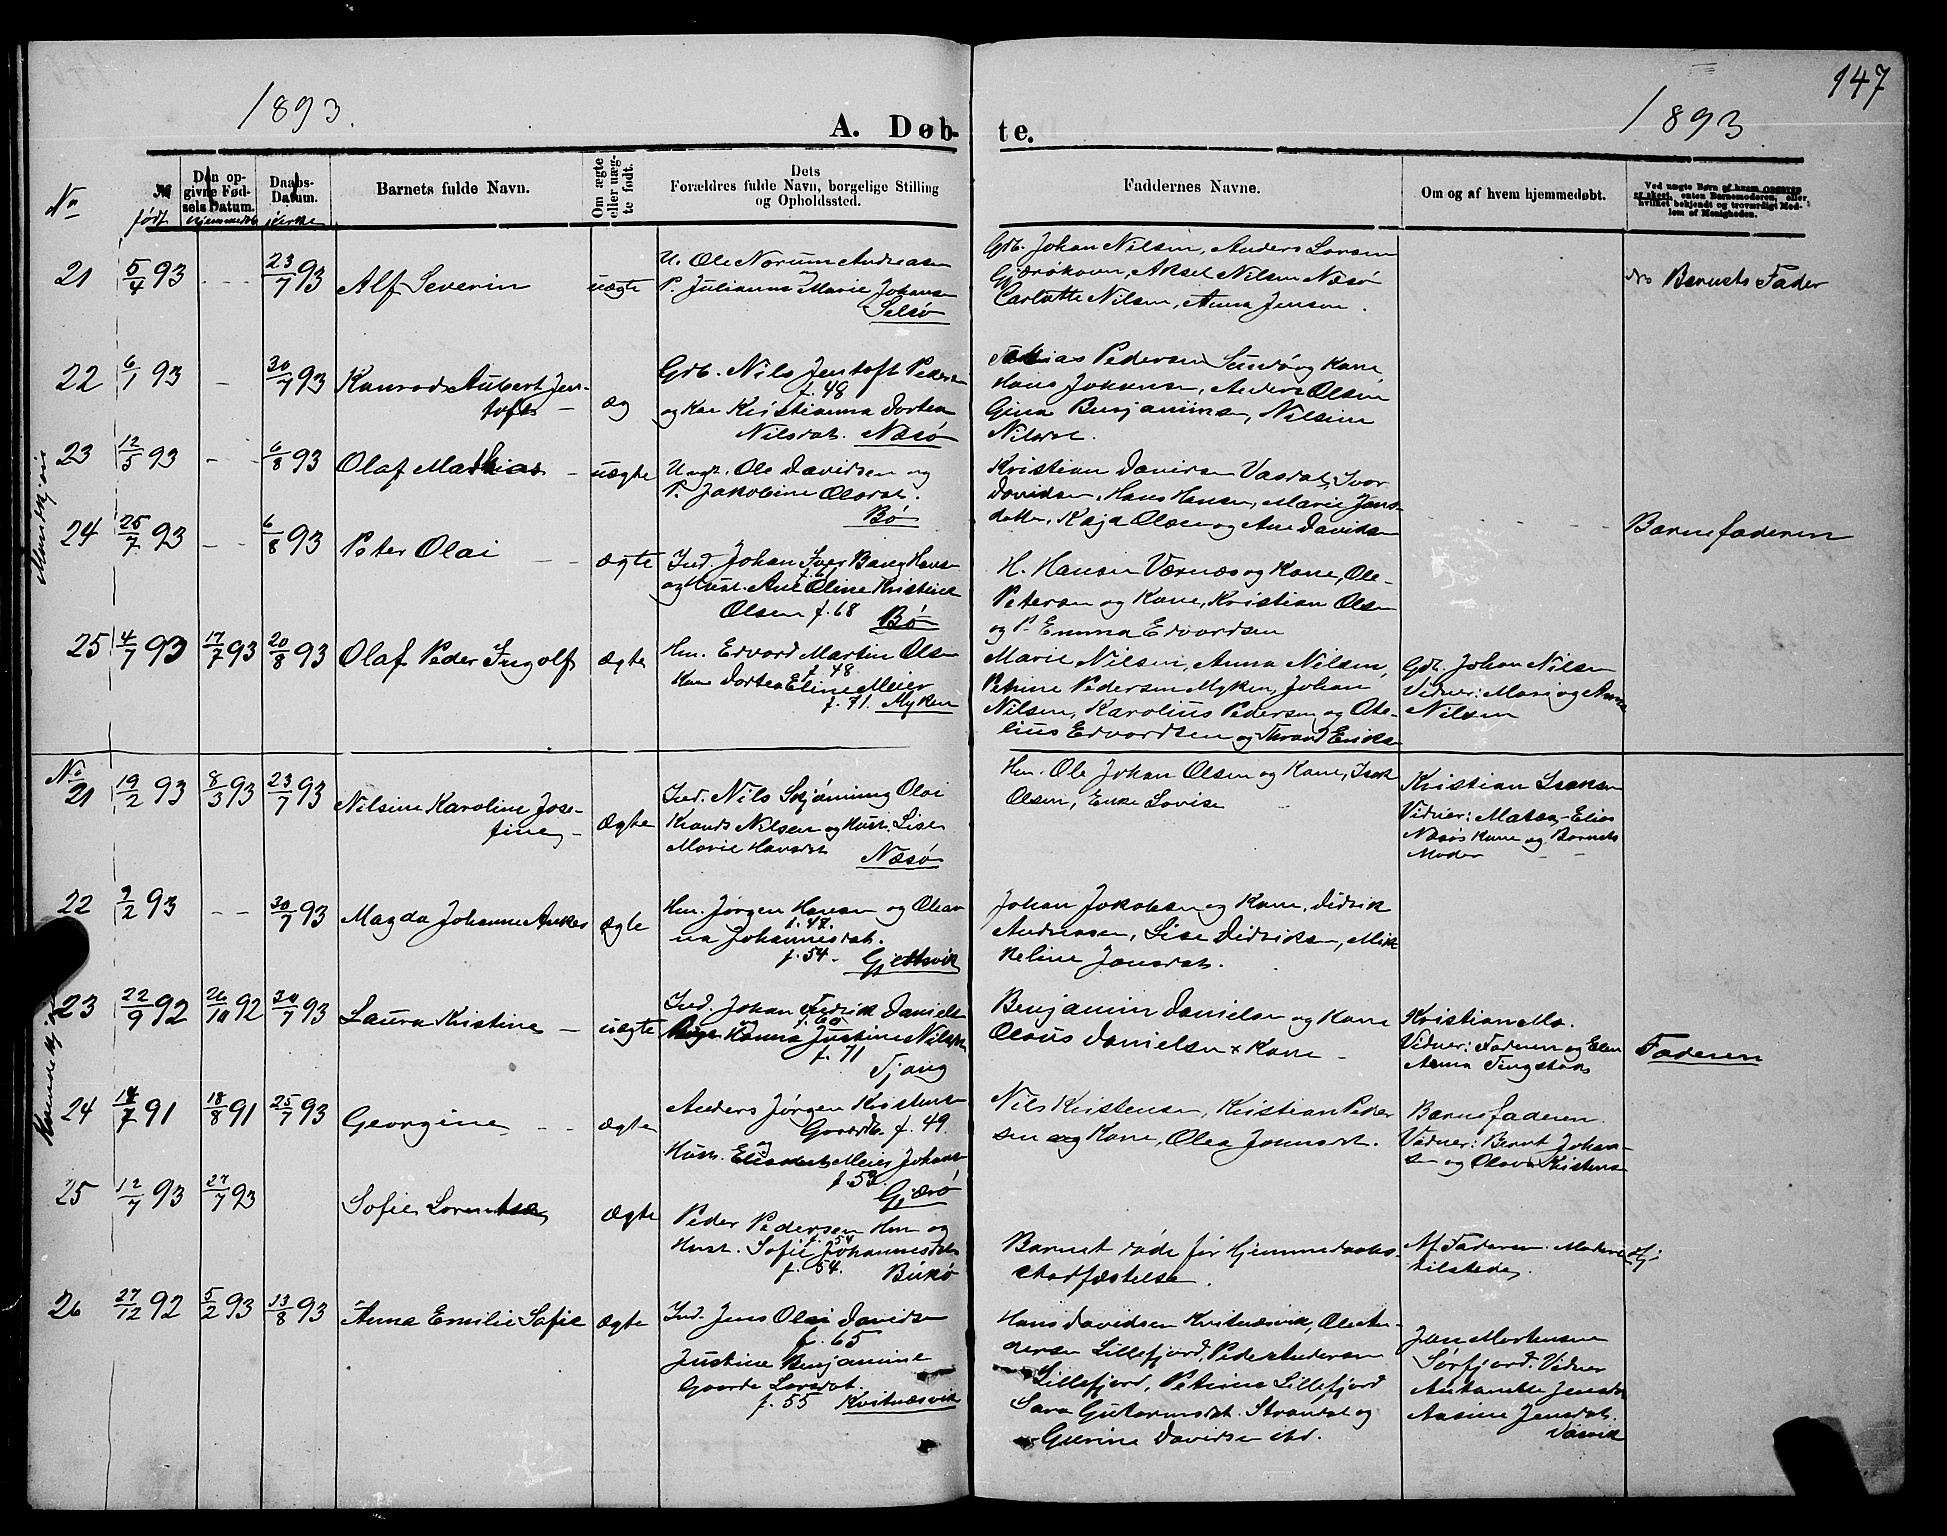 147
1893.
1893
A. Døb-
te.
No
№ født
Den opgivne Fødsels Datum. Hjemmedøbt
Daabs-Datum. i kirke
Barnets fulde Navn.
Om ægte eller uægte født.
Dets Forældres fulde Navn, borgelige Stilling og Opholdssted.
Faddernes Navne.
Om og af hvem hjemmedøbt.
Ved uægte Børn af hvem Opgivelse er skeet, enten Barnemoderen, eller hvilket bekjendt og troværdigt Medlem af Menigheden.
Mandkjøn
21 5/4 93 - - - 23/7 93 Alf Severin uægte
U. Ole Norum Andreasen
og
P. Julianna Marie Johansen
Selsø
Gdb. Johan Nilsen, Anders Larsen
Gjærøhavn, Aksel Nilsen Næsø
Carlotte Nilsen, Anna Jensen.
Barnets Fader
22 6/1 93 - 30/7 93 Konrad Aubert Jen-
toft - æg
Gdb. Nils Jentoft Pedersen
f. 48
og Kone Kristianna Dortea
Nilsdat. Næsø
Tobias Pedersen Sundø og Kone
Hans Johansen, Anders Olsen
Gina Benjaminsen, Nilsine
Nilsdat.
23 12/5 93 - - 6/8 93 Olaf Mathias - uægte
Ungk. Ole Davidsen og
P. Jakobine Olsdat.
Bø
Kristian Davidsen Vasdal, Ivar
Davidsen, Hans Hansen, Marie Jens-
datter, Kaja Olsen og Ane Davidsen
Barnefaderen
24 25/7 93 - - 6/8 93 Peter Olai - - ægte
Ind. Johan Iver Bang Hansen
og Hust. Ane Oline Kristine
Olsen f. 68 Bø
H. Hansen Værnæs og Kone, Ole
Petersen og Kone, Kristian Olsen
og P. Emma Edvardsen
25 4/7 93 17/7 93 20/8 93 Olaf Peder Ingolf ægte
Hm. Edvard Martin Olsen
f. 48
Kone Dortea Eline Meier
f. 71. Myken
Marie Nilsen, Anna Nilsen,
Petrine Pedersen Myken, Johan
Nilsen, Karolius Pedersen og Ote-
lius Edvardsen og Thrand Eriksen
Gdb. Johan Nilsen
Vidner: Marie og Anna
Nilsen
Kvindekjøn
No
21 19/2 93 8/3 93 23/7 93 Nilsine Karoline Jose-
fine - ægte
Ind. Nils Skjønning Olai
Krands Nilsen og Hust. Lise
Marie Hansdat
Næsø
Hm. Ole Johan Olsen og Kone, Isak
Olsen, Enke Lovise
Kristian Isaksen
Vidner: Matea Elias
Næsøs Kone og Barnets
Moder - -
22 9/2 93 - - 30/7 93 Magda Johanne Ankes ægte
Hm. Jørgen Hansen og Olean-
f. 47.
na Johannesdat.
f. 54. Gjettsvik
Johan Jakobsen og Kone, Didrik
Andreasen, Lise Didriksen, Mik
keline Jensdat.
23 22/9 92 26/10 92 30/7 93 Laura Kristine - uægte
Ind. Johan Fredrik Danielsen
f. 60
Pige Hanna Justine Nilsen
f. 71
Tjong
Benjamin Danielsen og Kone
Olaus Danielsen & Kone -
Kristian Mo.
Vidner: Faderen og Elen
Anna Tingstads
Faderen
24 18/7 91 18/8 91 25/7 93 Georgine - - ægte
Anders Jørgen Kristensen
Gaardb. f. 49.
Hust. Elisabet Meier Johans
f. 53.
Gjærø
Nils Kristensen, Kristian Peder
sen og Kone, Olea Jonsdat.
Barnefaderen.
Vidner: Bernt Johan-
sen og Olava Kristensen
25 12/7 93 27/7 93 Sofie Lorentse ægte
Peder Pedersen Hm og
f. 54
Hust. Sofie Johannesdat
f. 54. Bukø
Barnet døde før Hjemmedaabs-
stadfæstelse.
Af Faderen. Moderen
tilstede.
26 27/12 92 5/2 93 13/8 93 Anna Emilie Sofie ægte
Ind. Jens Olai Davidsen
f. 65
Justine Benjamine
Gaarda Larsdat.
f. 55 Kvitnæsvik
Hans Davidsen Kvitnæsvik, Ole An-
dersen Lillefjord, Peder Andersen
Lillefjord, Petrine Lillefjord
Sara Guttormsdat. Strandal og
Gurine Davidsen ibd.
Jon Mortensen
Sørfjord. Vidner
Antonette Jensdat
Aasine Jensdat.
Vasvik